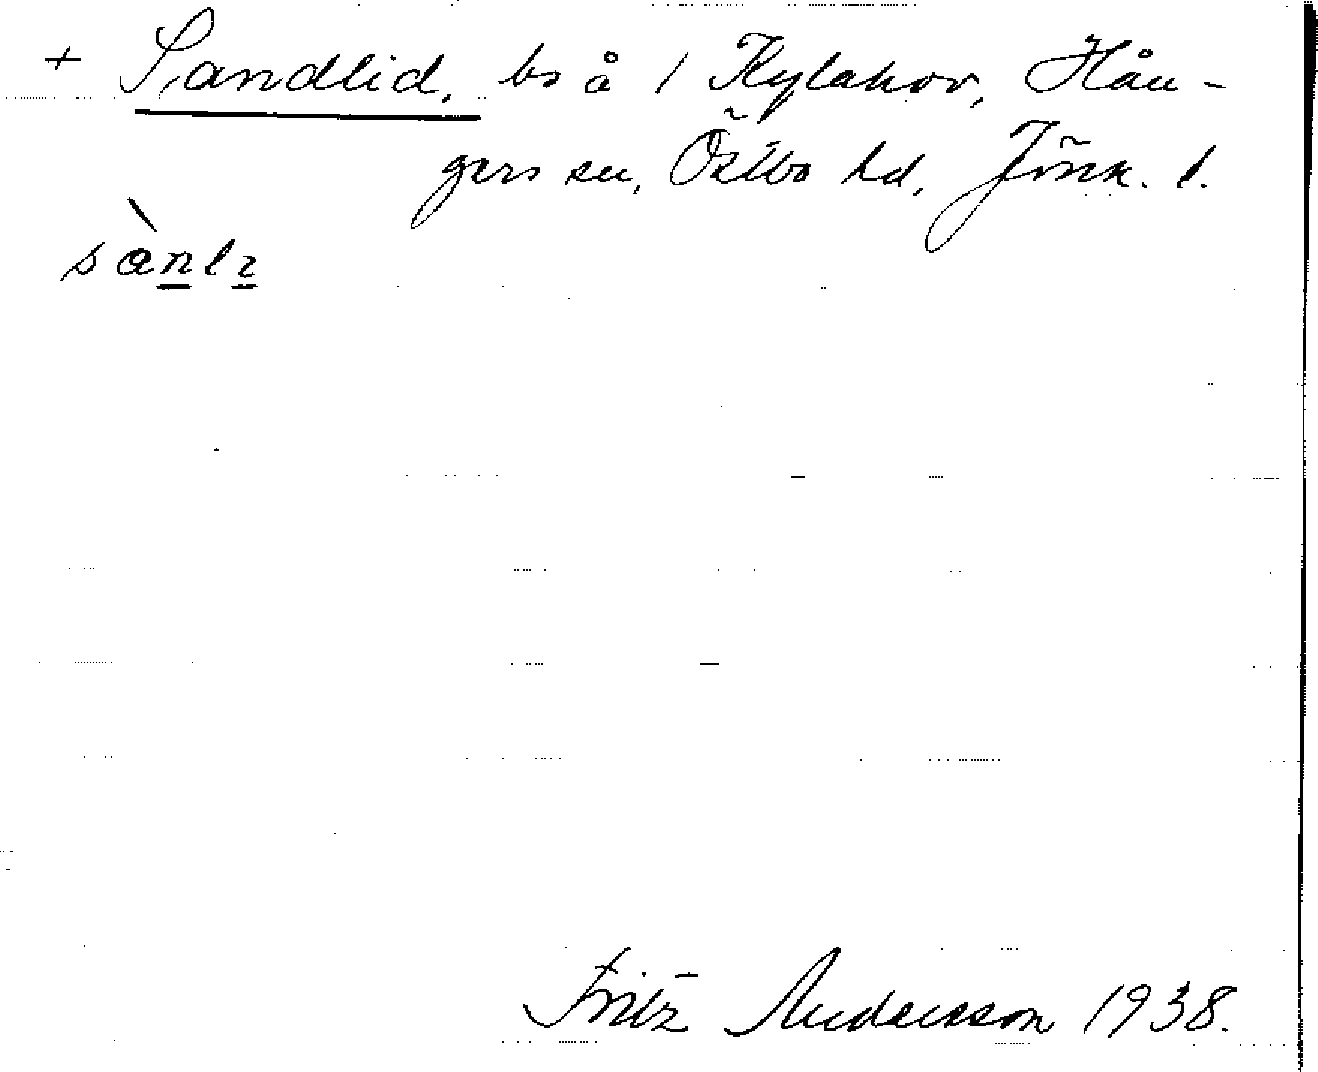 + Sandlid, bs å 1 Kylahov, Hån-
gers sn, Östbo hd, Jönk. l.
sànlı
Fritz Andersson 1938.